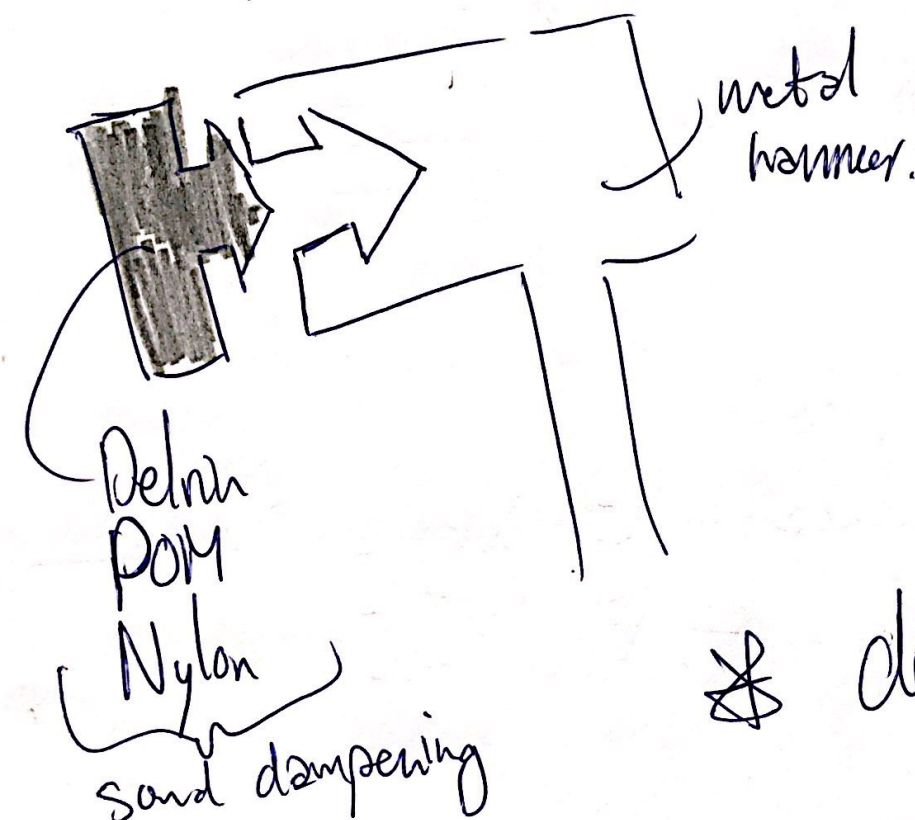 metal
hammer.
Delrin
POM
Nylon
sound dampening
* d